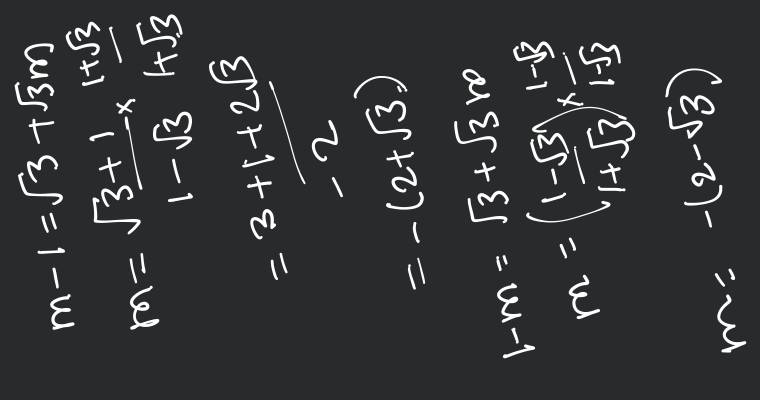 m - 1 = √3 + √3m
m = (√3 + 1)/(1 - √3) × (1+√3)/(1+√3)
= (3 + 1 + 2√3)/(-2)
= -(2+√3)
1 - m = √3 + √3m
m = (1-√3)/(1+√3) × (1-√3)/(1-√3)
m = -(2-√3)